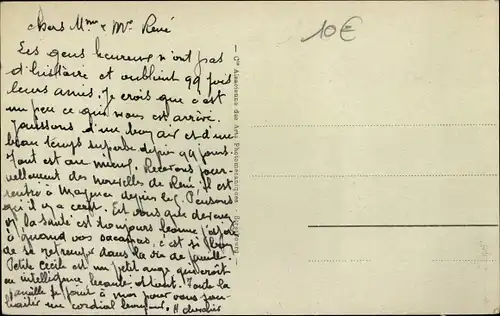 chers Mme & Mr René
Les gens heureux n'ont pas
d'histoire et oublient 99 fois
leurs amis. Je crois que c'est
un peu ce qui nous est arrivé.
Jouissons d'un bon air et d'un
beau temps superbe depuis 99 jours.
Tout est au mieux. Recevons jour-
nellement des nouvelles de René. Il est
rentré à depuis le
qu'il y a Est vous que
et la santé est toujours bonne j'espère
à quand vos vacances, c'est si bon
de se retremper dans la vie de famille.
Petite Cécile est un petit ange qui croit
en intelligence Toute la
famille se joint à moi pour vous sou-
haiter un cordial bonjour. H Chevalier
10€
— Cie Alsacienne des Arts Photomécaniques, Strasbourg —